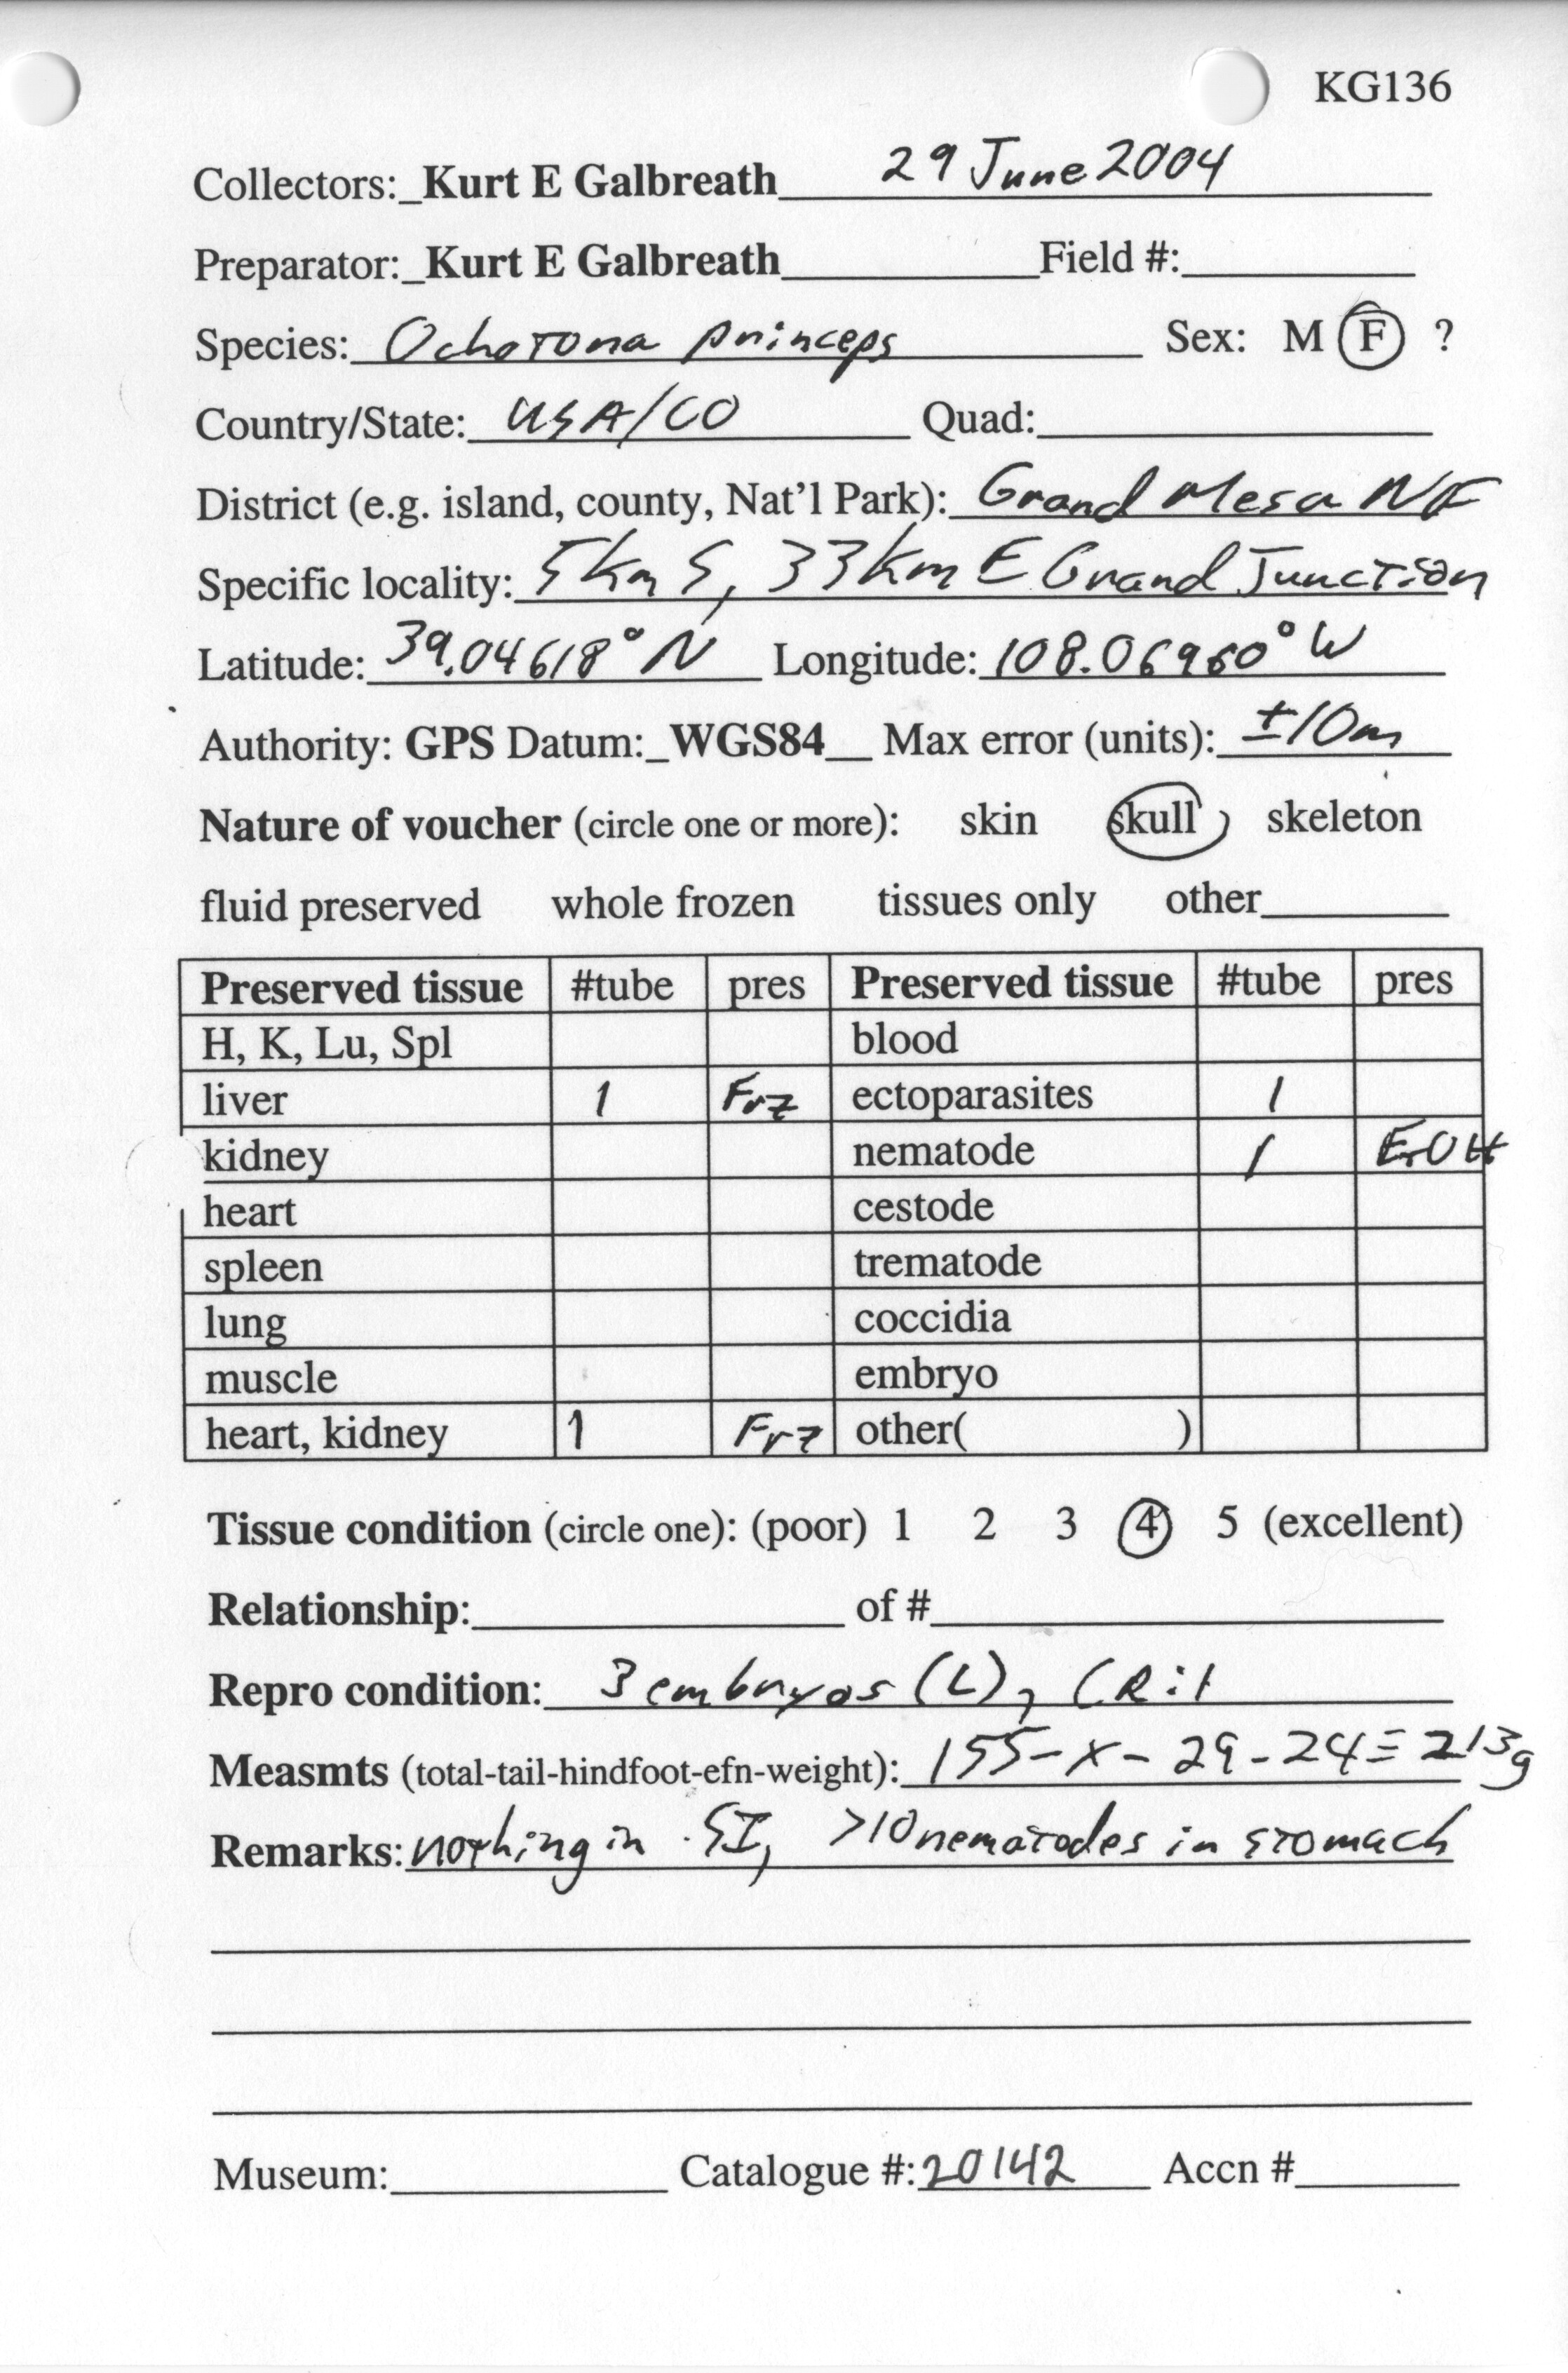 KG136
Collectors:_Kurt E Galbreath 29 June 2004
Preparator:_Kurt E Galbreath Field #:
Species: Ochotona princeps Sex: M F ?
Country/State: USA/CO Quad:
District (e.g. island, county, Nat'l Park): Grand Mesa NF
Specific locality: 5km S, 33km E Grand Junction
Latitude: 39.04618° N Longitude: 108.06960° W
Authority: GPS Datum:_WGS84__ Max error (units): ±10m
Nature of voucher (circle one or more): skin skull skeleton
fluid preserved whole frozen tissues only other
Preserved tissue #tube pres Preserved tissue #tube pres
H, K, Lu, Spl blood
liver 1 Frz ectoparasites 1
kidney nematode 1 EtOH
heart cestode
spleen trematode
lung coccidia
muscle embryo
heart, kidney 1 Frz other( )
Tissue condition (circle one): (poor) 1 2 3 4 5 (excellent)
Relationship: of #
Repro condition: 3 embryos (L),
Measmts (total-tail-hindfoot-efn-weight): 155-x-29-24≡213g
Remarks: nothing in SI, >10 nematodes in stomach
Museum: Catalogue #: 20142 Accn #